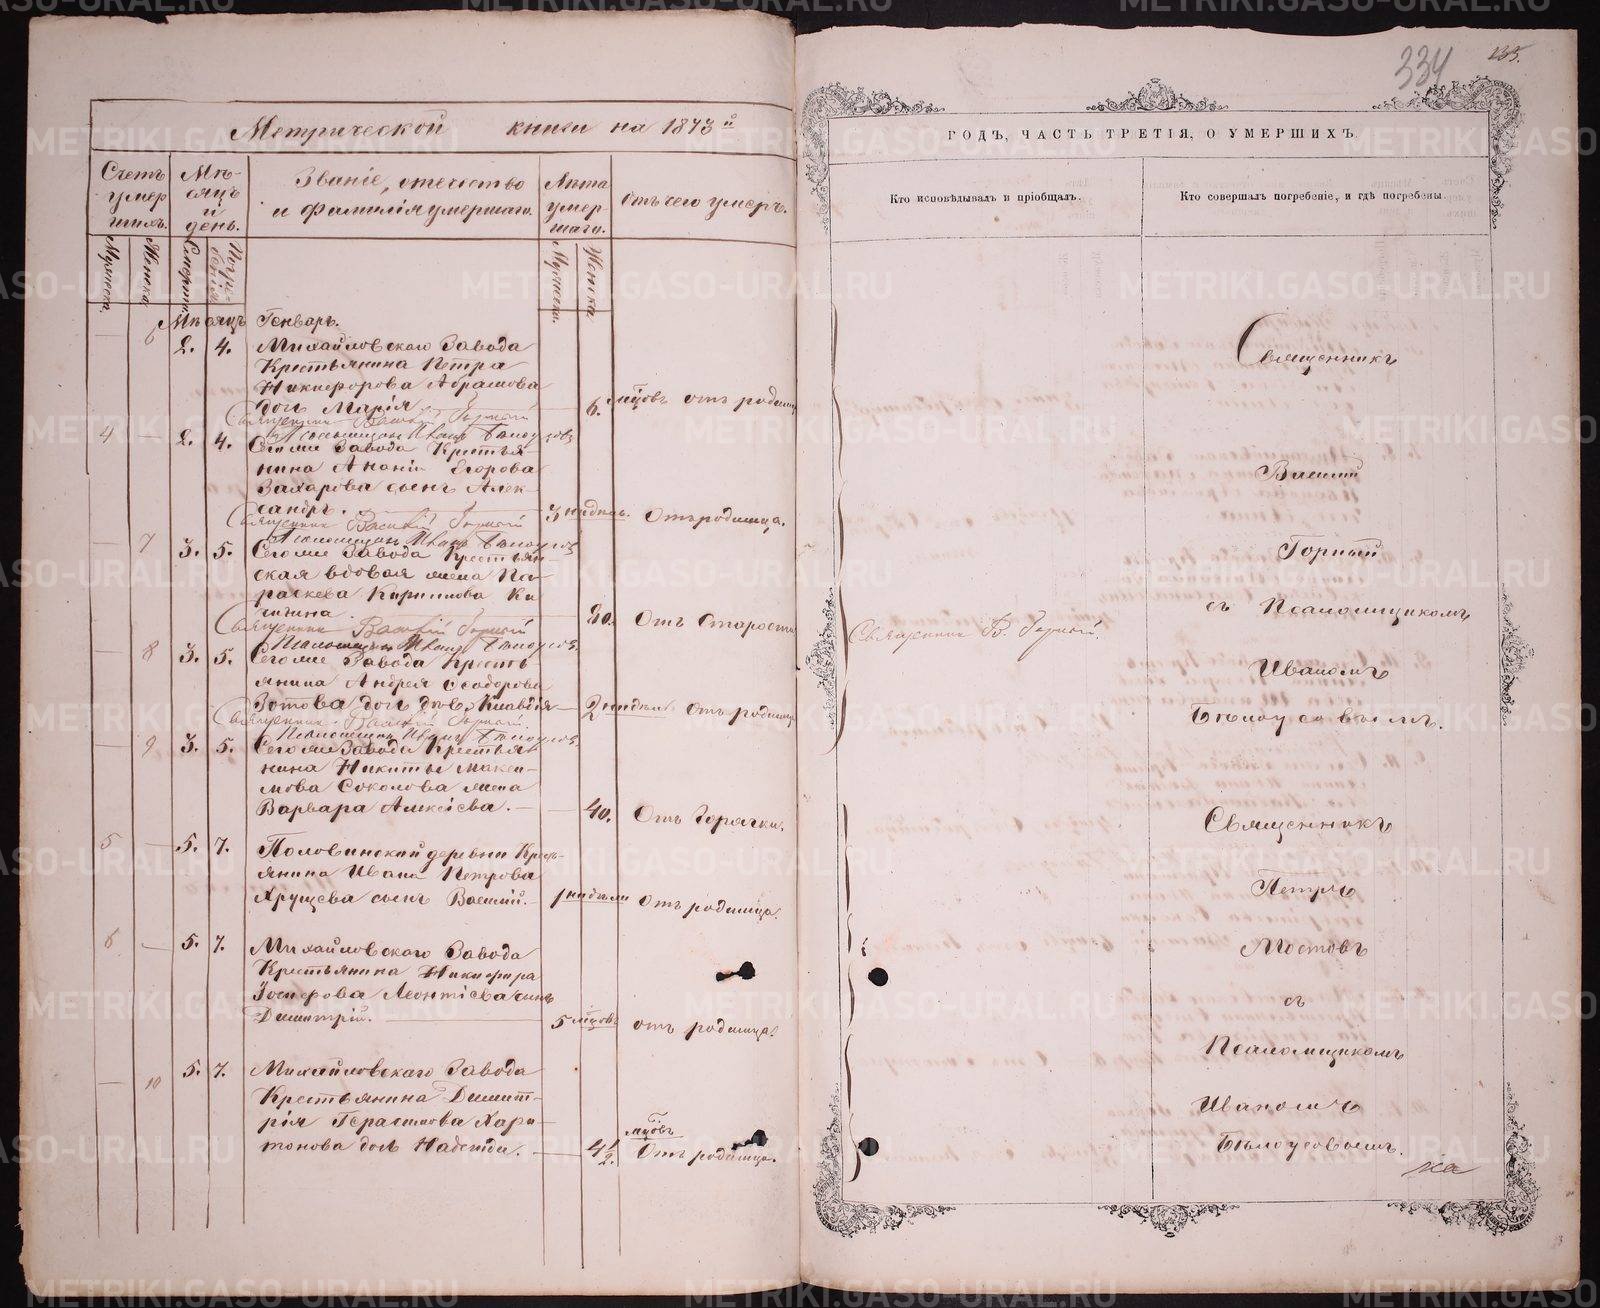 334
135.
Метрической книги на 1873й
Счетъ умершихъ.
Мѣсяцъ и день.
Званіе, отечество и фамилія умершаго.
Лѣта умершаго.
Отъ чего умеръ.
Мужеска.
Женска.
Смерти.
Погребенія
Мужеска.
Женска
Мѣсяцъ Генварь.
6 2. 4. Михайловскаго Завода
Крестьянина Петра
Никифорова Абрамова
дочь Марія 6. мцовъ отъ родимца
Священникъ Василій Горный
Псаломщикъ Иванъ Бѣлоусовъ
4 — 2. 4. Сегоже Завода Крестья-
нина Ананіи Егорова
Захарова сынъ Алек-
сандръ. 3 недѣль. Отъ родимца.
Священникъ Василій Горный
Псаломщикъ Иванъ Бѣлоусовъ
— 7 3. 5. Сегоже Завода Крестьян-
ская вдовая жена Па-
раскева Кириллова Ки
80. Отъ Старости
Священникъ Василій Горный
Псаломщикъ Иванъ Бѣлоусовъ
— 8 3. 5. Сегоже Завода Кресть
янина Андрея Ѳеодорова
Зотова дочь Клавдія — 2 недѣль отъ родимца
Священникъ Василій Горный
Псаломщикъ Иванъ Бѣлоусовъ
— 9 3. 5. Сегоже Завода Крестья
нина Никиты Макси-
мова Соколова жена
Варвара Алексіева. — 40. Отъ Горячки.
5 — 5. 7. Половинский деревни Кресть-
янина Ивана Петрова
Хрущева сынъ Василій. — 1 недѣли Отъ родимца.
6 — 5. 7. Михайловскаго Завода
Крестьянина Никифора
Леонтіева сынъ
Димитрій. 5 мцовъ отъ родимца
— 10 5. 7. Михайловскаго Завода
Крестьянина Димит-
рія Герасимова Хари-
тонова дочь Надежда. — 4 1/2. мцовъ Отъ родимца.
ГОДЪ, ЧАСТЬ ТРЕТІЯ, О УМЕРШИХЪ.
Кто исповѣдывалъ и пріобщалъ.
Кто совершалъ погребеніе, и гдѣ погребены.
Священникъ В. Горный.
Священникъ
Василій
Горный
съ Псаломщикомъ
Иваномъ
Бѣлоусовымъ.
Священникъ
Петръ
Мостовъ
съ
Псаломщикомъ
Иваномъ
Бѣлоусовымъ.
METRIKI.GASO-URAL.RU